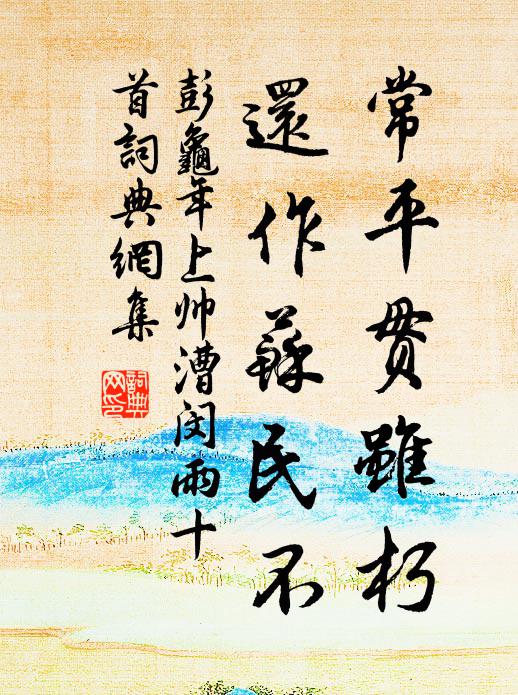 常平貫雖朽
還作蘇民不
彭龜年上帅漕闵雨十
首詞典網集
詞典
网印